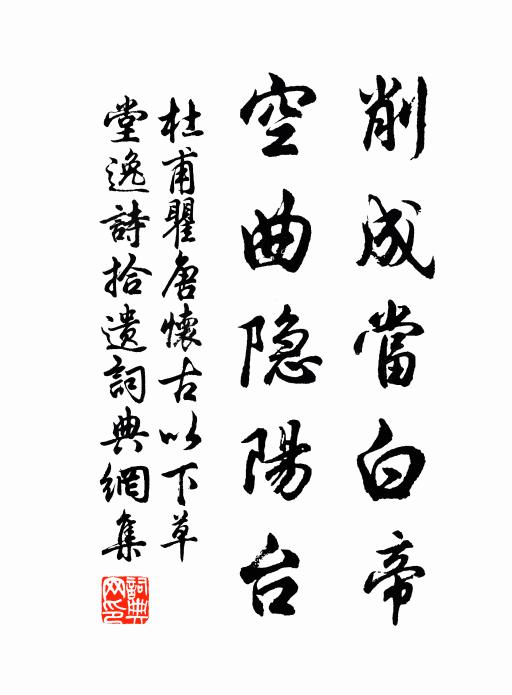 削成當白帝
空曲隐陽台
杜甫瞿唐懷古以下草
堂逸詩拾遺詞典網集
詞典
网印